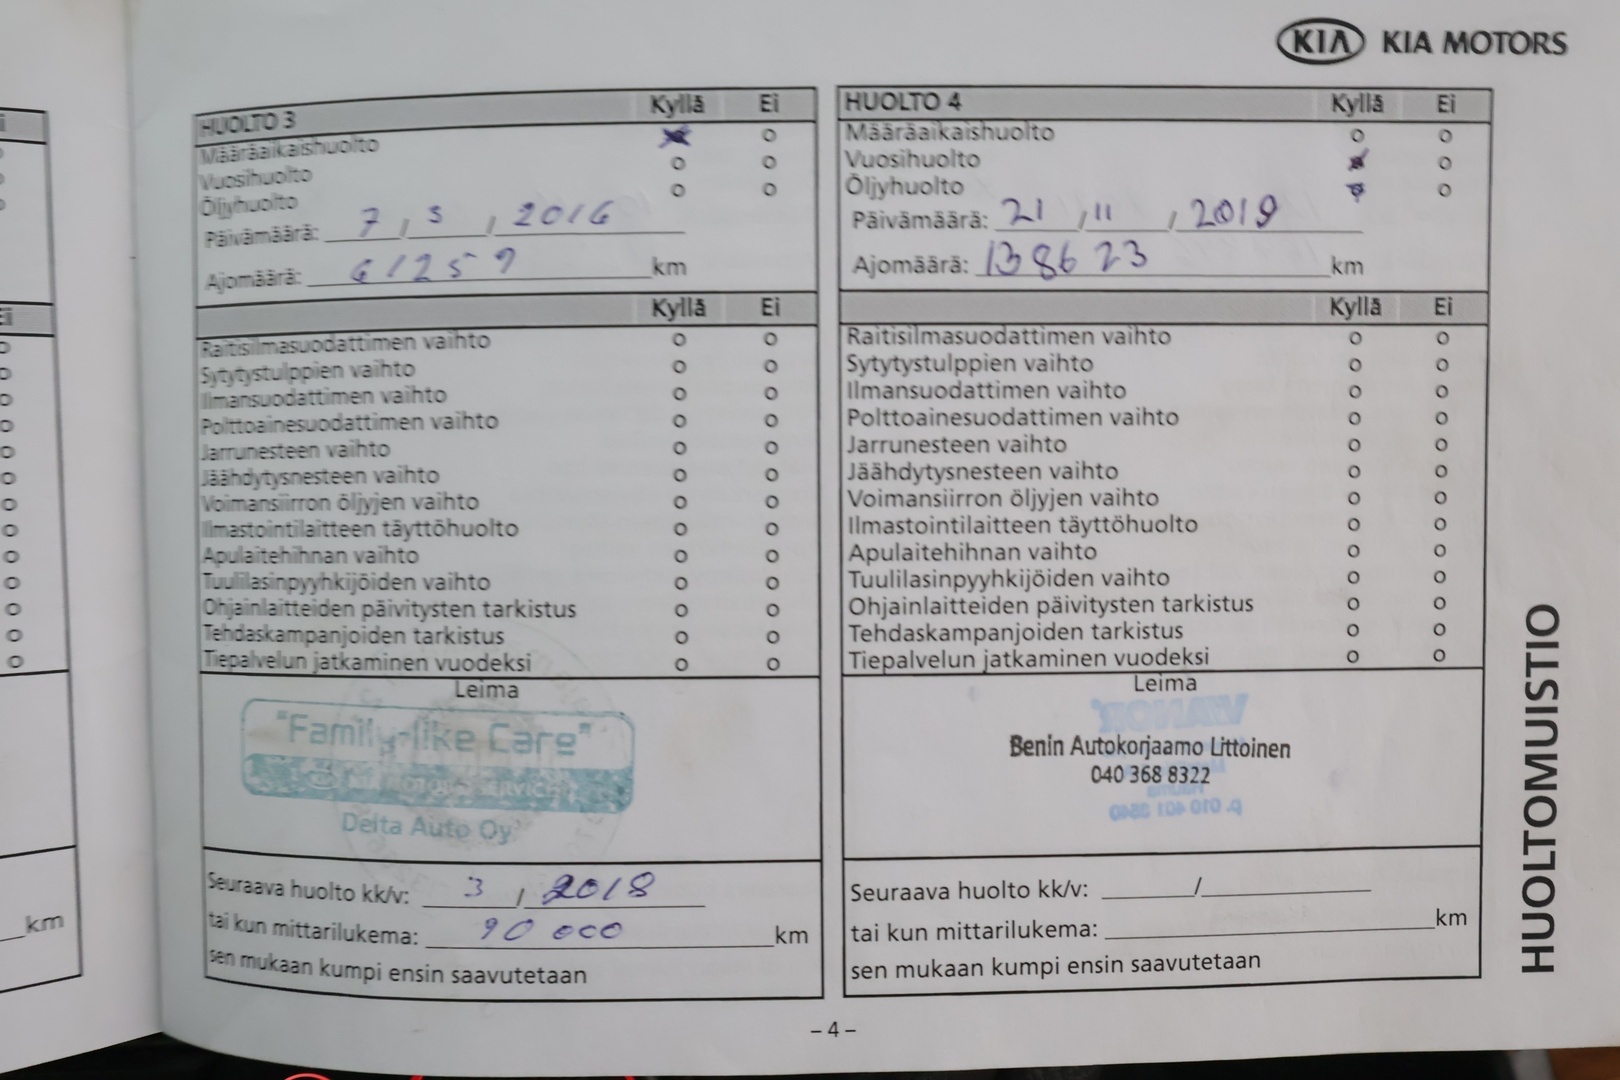 KIA KIA MOTORS
HUOLTO 3 Kyllä Ei
Määräaikaishuolto
Vuosihuolto
Öljyhuolto
Päivämäärä: 7 / 3 / 2016
Ajomäärä: 61259 km
Kyllä Ei
Raitisilmasuodattimen vaihto
Sytytystulppien vaihto
Ilmansuodattimen vaihto
Polttoainesuodattimen vaihto
Jarrunesteen vaihto
Jäähdytysnesteen vaihto
Voimansiirron öljyjen vaihto
Ilmastointilaitteen täyttöhuolto
Apulaitehihnan vaihto
Tuulilasinpyyhkijöiden vaihto
Ohjainlaitteiden päivitysten tarkistus
Tehdaskampanjoiden tarkistus
Tiepalvelun jatkaminen vuodeksi
Leima
"Family-like Care"
Delta Auto Oy
Seuraava huolto kk/v: 3 / 2018
tai kun mittarilukema: 90 000 km
sen mukaan kumpi ensin saavutetaan
HUOLTO 4 Kyllä Ei
Määräaikaishuolto
Vuosihuolto
Öljyhuolto
Päivämäärä: 21 / 11 / 2019
Ajomäärä: 138623 km
Kyllä Ei
Raitisilmasuodattimen vaihto
Sytytystulppien vaihto
Ilmansuodattimen vaihto
Polttoainesuodattimen vaihto
Jarrunesteen vaihto
Jäähdytysnesteen vaihto
Voimansiirron öljyjen vaihto
Ilmastointilaitteen täyttöhuolto
Apulaitehihnan vaihto
Tuulilasinpyyhkijöiden vaihto
Ohjainlaitteiden päivitysten tarkistus
Tehdaskampanjoiden tarkistus
Tiepalvelun jatkaminen vuodeksi
Leima
Benin Autokorjaamo Littoinen
040 368 8322
Seuraava huolto kk/v: /
tai kun mittarilukema: km
sen mukaan kumpi ensin saavutetaan
HUOLTOMUISTIO
km
– 4 –